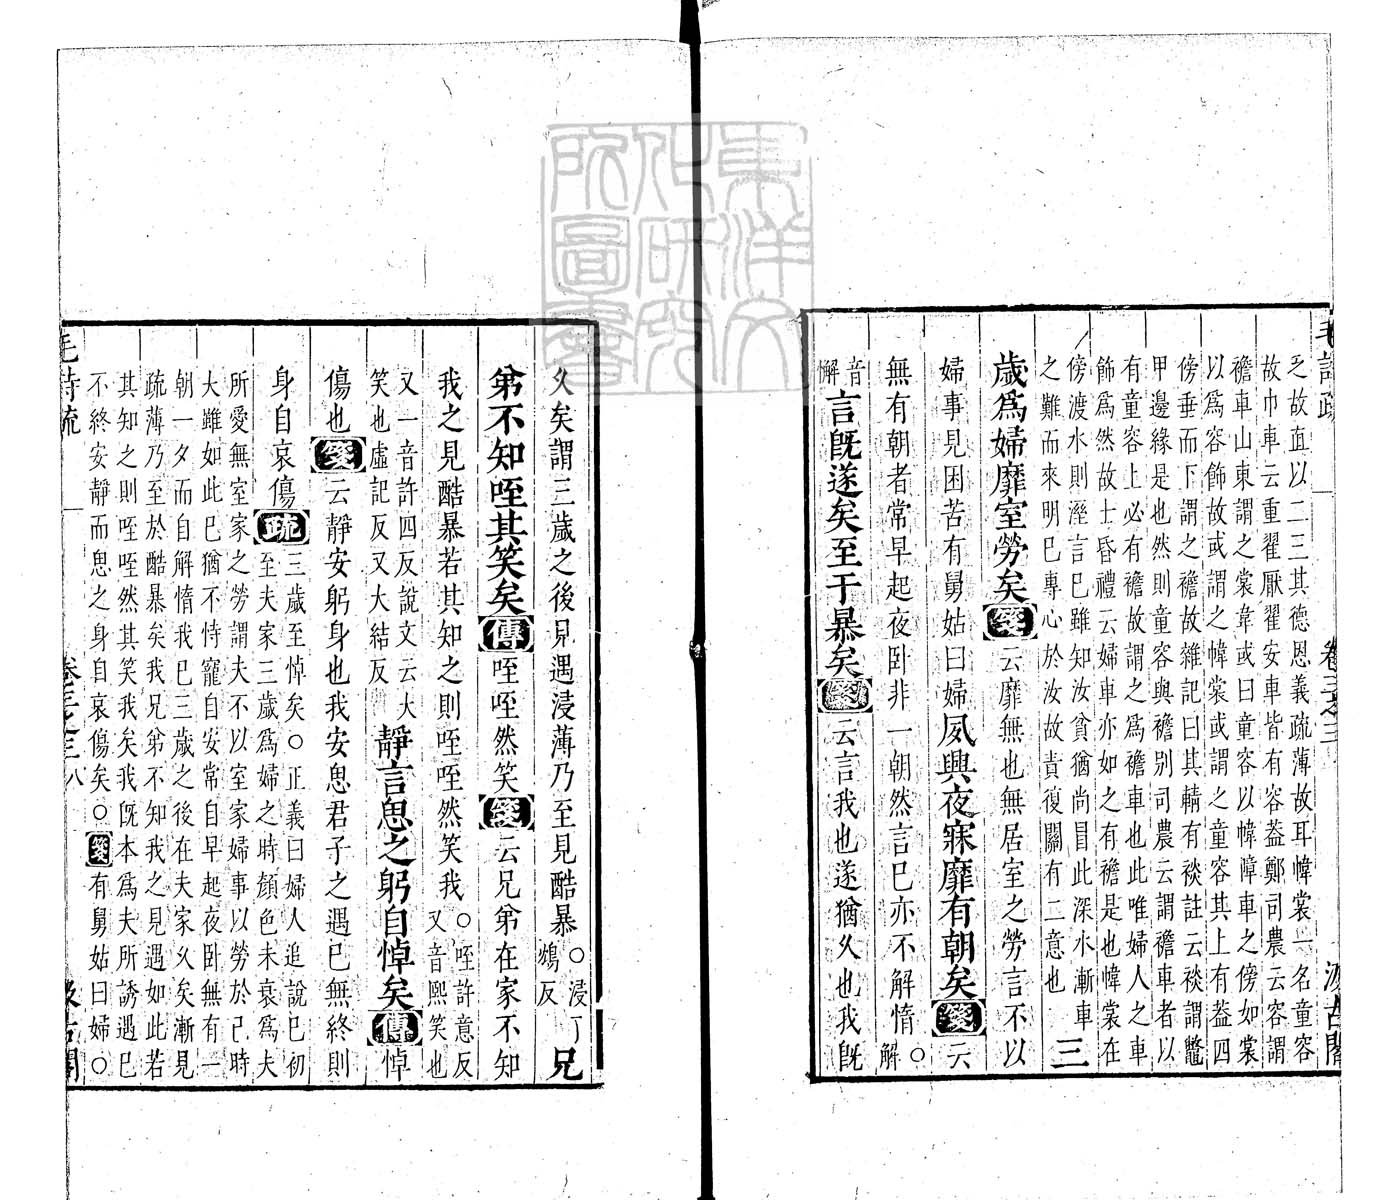 毛詩疏　卷三之三　汲古閣
乏故直以二三其德恩義疏薄故耳幃裳一名童容
故巾車云重翟厭翟安車皆有容葢鄭司農云容謂
襜車山東謂之裳幃或曰童容以幃障車之傍如裳
以爲容飾故或謂之幃裳或謂之童容其上有葢四
傍垂而下謂之襜故雜記曰其輤有裧註云裧謂鼈
甲邊緣是也然則童容與襜别司農云謂襜車者以
有童容上必有襜故謂之爲襜車也此唯婦人之車
飾爲然故士昏禮云婦車亦如之有襜是也幃裳在
傍渡水則溼言巳雖知汝貧猶尚冒此深水漸車
之難而來明巳專心於汝故責復關有二意也　三
歲爲婦靡室勞矣箋云靡無也無居室之勞言不以
婦事見困苦有舅姑曰婦夙興夜寐靡有朝矣箋云
無有朝者常早起夜卧非一朝然言巳亦不解惰○解
音懈言旣遂矣至于暴矣箋云言我也遂猶久也我旣
久矣謂三歲之後見遇浸薄乃至見酷暴○浸丁鴆反兄
弟不知咥其笑矣傳咥咥然笑箋云兄弟在家不知
我之見酷暴若其知之則咥咥然笑我○咥許意反又音熙笑也
又一音許四反說文云大笑也虛記反又大結反靜言思之躬自悼矣傳悼
傷也箋云靜安躬身也我安思君子之遇巳無終則
身自哀傷疏三歲至悼矣○正義曰婦人追說巳初至夫家三歲爲婦之時顏色未衰爲夫
所愛無室家之勞謂夫不以室家婦事以勞於己時
大雖如此巳猶不恃寵自安常自早起夜卧無有一
朝一夕而自解惰我巳三歲之後在夫家久矣漸見
疏薄乃至於酷暴矣我兄弟不知我之見遇如此若
其知之則咥咥然其笑我矣我旣本爲夫所誘遇巳
不終安靜而思之身自哀傷矣○箋有舅姑曰婦○
毛詩疏　卷三之三　八　汲古閣
東洋文化研究所圖書